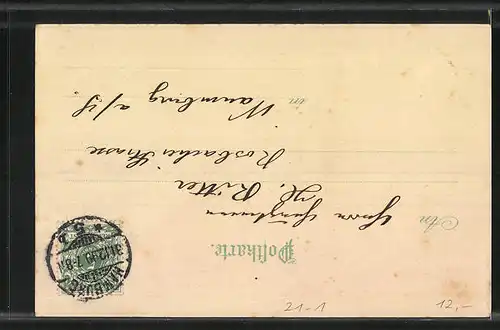 Postkarte.
An Herrn
H. Ritter
Rosbacher Strasse
in Naumburg a/S
HAMBURG
* 5 b
21-1
12,-